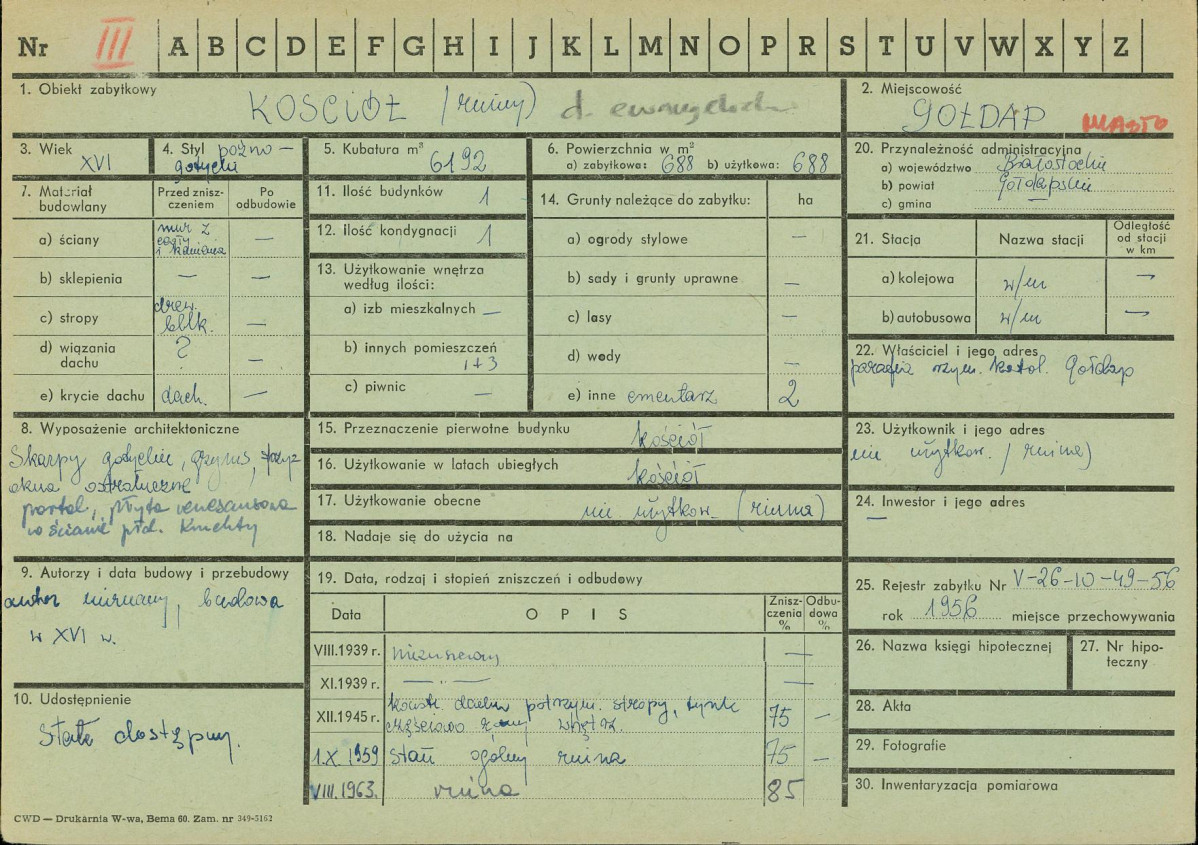 Nr III A B C D E F G H I J K L M N O P R S T U V W X Y Z
1. Obiekt zabytkowy
KOŚCIÓŁ (ruiny) d.
2. Miejscowość
GOŁDAP MIASTO
3. Wiek
XVI
4. Styl późno –
gotycki
5. Kubatura m³
6192
6. Powierzchnia w m²
a) zabytkowa: 688 b) użytkowa: 688
20. Przynależność administracyjna
a) województwo Białostockie
b) powiat Gołdapskie
c) gmina
7. Materiał budowlany
Przed znisz-
czeniem
Po
odbudowie
a) ściany
mur z
cegły
i kamienia
—
b) sklepienia — —
c) stropy
drew.
belk. —
d) wiązania
dachu
? —
e) krycie dachu dach. —
11. Ilość budynków 1
12. Ilość kondygnacji 1
13. Użytkowanie wnętrza
według ilości:
a) izb mieszkalnych —
b) innych pomieszczeń
1+3
c) piwnic —
14. Grunty należące do zabytku: ha
a) ogrody stylowe —
b) sady i grunty uprawne —
c) lasy —
d) wody —
e) inne cmentarz 2
21. Stacja Nazwa stacji
Odległość
od stacji
w km
a) kolejowa w/m —
b) autobusowa w/m —
22. Właściciel i jego adres
parafia rzym. katol. Gołdap
8. Wyposażenie architektoniczne
Skarpy gotyckie, gzyms, fryz
okna ostrołuczne
portal, płyta renesansowa
w ścianie płd. Kruchty
15. Przeznaczenie pierwotne budynku kościół
16. Użytkowanie w latach ubiegłych kościół
17. Użytkowanie obecne nie użytkow. (ruina)
18. Nadaje się do użycia na
23. Użytkownik i jego adres
nie użytkow. (ruina)
24. Inwestor i jego adres
—
9. Autorzy i data budowy i przebudowy
autor nieznany, budowa
w XVI w.
10. Udostępnienie
Stale dostępny.
19. Data, rodzaj i stopień zniszczeń i odbudowy
Data OPIS
Znisz-
czenia
%
Odbu-
dowa
%
VIII.1939 r. niezniszczony —
XI.1939 r. — . — —
XII.1945 r.
konstr. dachu potrzym. stropy, tynk
częściowo wnętrz. 75 —
1.X.1959 Stan ogólny ruina 75 —
VIII.1963. ruina 85
25. Rejestr zabytku Nr V-26-10-49-56
rok 1956 miejsce przechowywania
26. Nazwa księgi hipotecznej
27. Nr hipo-
teczny
28. Akta
29. Fotografie
30. Inwentaryzacja pomiarowa
CWD — Drukarnia W-wa, Bema 60. Zam. nr 349-5162